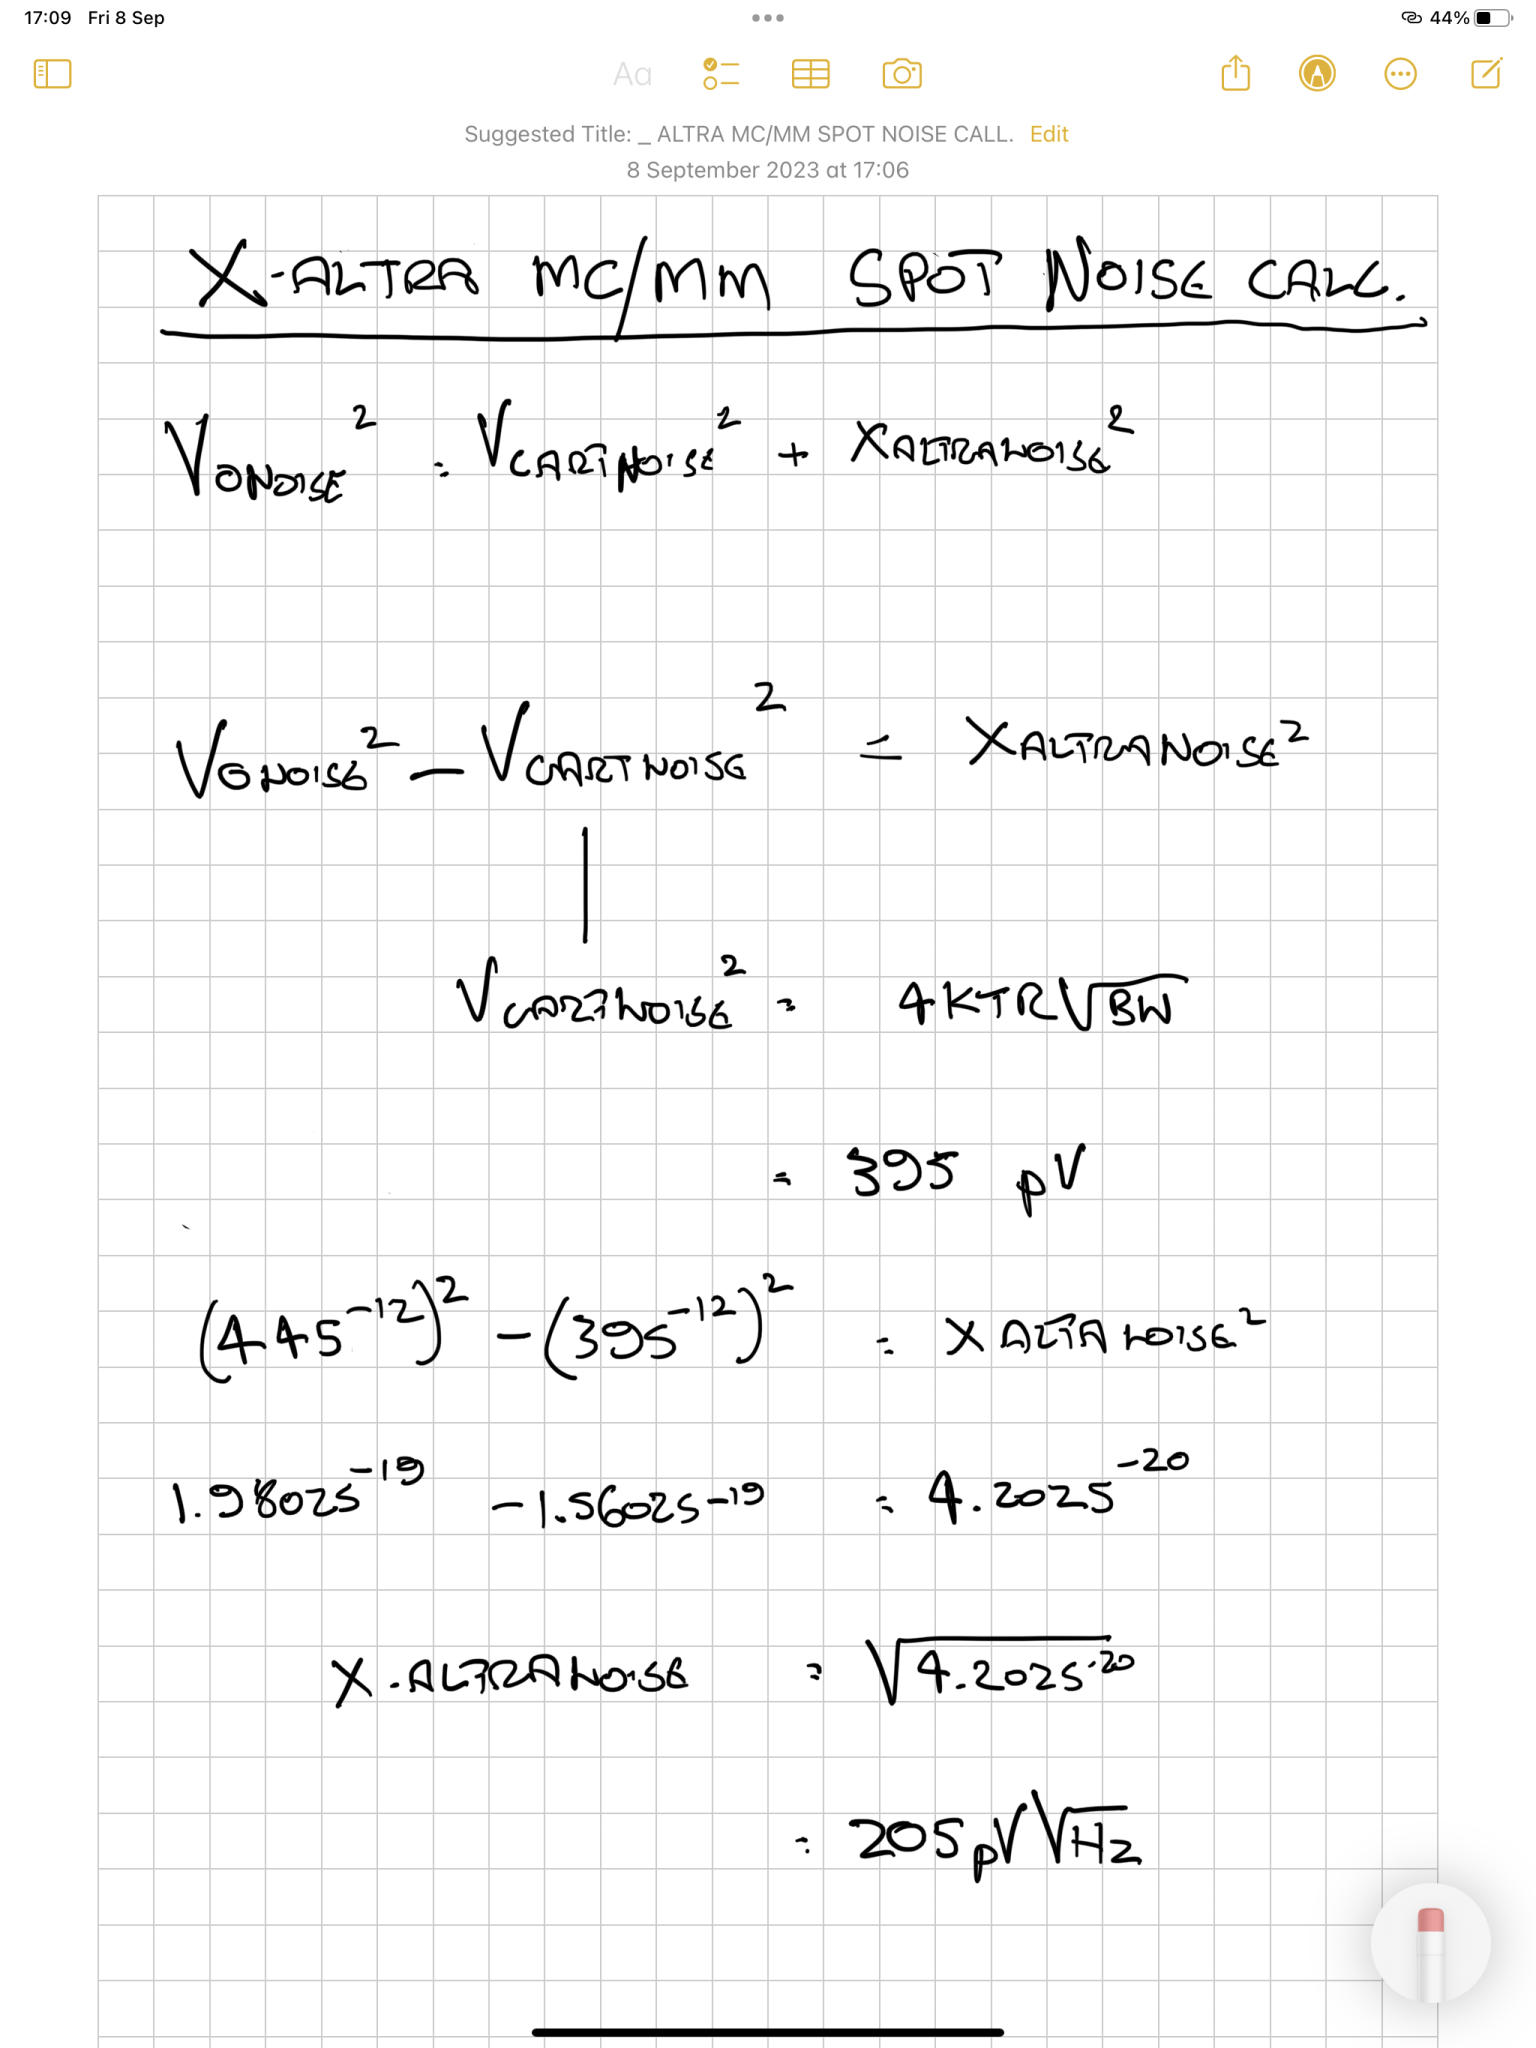 17:09 Fri 8 Sep
44%
Aa
Suggested Title: _ ALTRA MC/MM SPOT NOISE CALL. Edit
8 September 2023 at 17:06
X-ALTRA MC/MM SPOT NOISE CALC.
VONOISE² = VCARTNOISE² + XALTRANOISE²
VONOISE² - VCARTNOISE² = XALTRANOISE²
VCARTNOISE² = 4KTR√BW
= 395 pV
(445⁻¹²)² - (395⁻¹²)² = XALTANOISE²
1.98025⁻¹⁹ - 1.56025-¹⁹ = 4.2025⁻²⁰
X-ALTRANOISE = √4.2025⁻²⁰
= 205pV√Hz